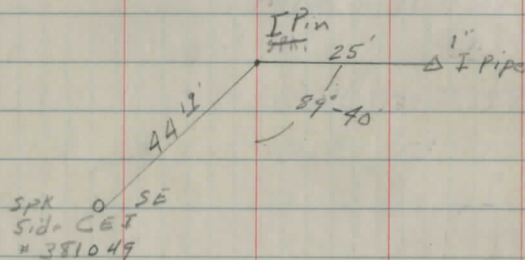 I Pin
Spk.
25'
1"
I pipe
89°-40'
44.19'
Spk SE
Side CEI
# 381049